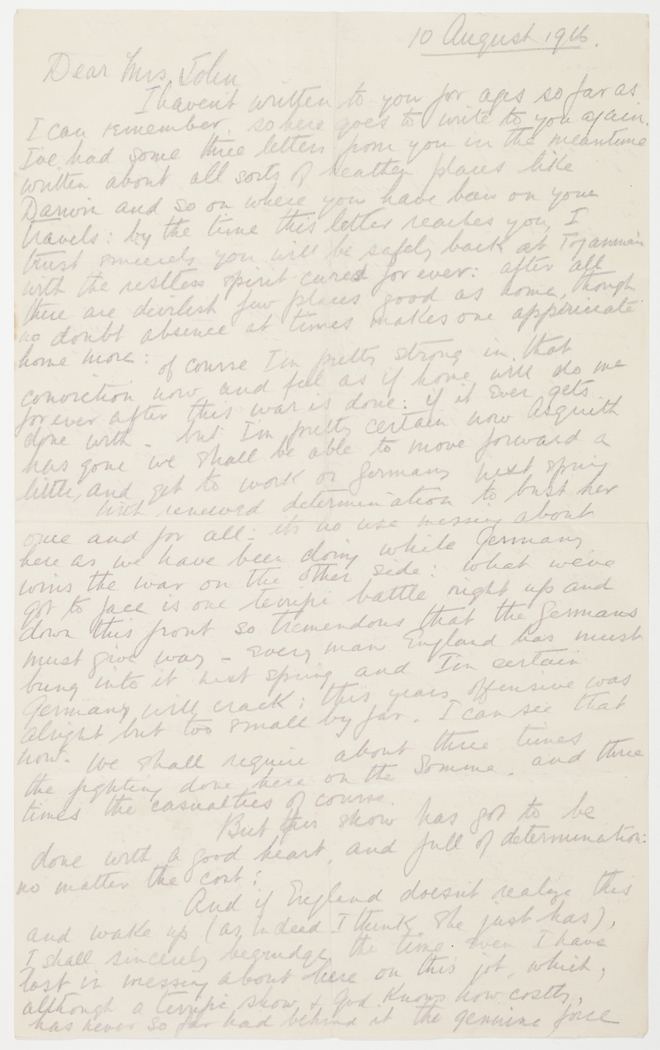 10 August 1916.
Dear Mrs. John
I haven't written to you for ages so far as
I can remember, so here goes to write to you again.
I've had some three letters from you in the meantime
written about all sorts of heathen places like
Darwin and so on where you have been on your
travels: by the time this letter reaches you, I
trust sincerely you will be safely back at Tojanmain
with the restless spirit cured for ever: after all
there are devilish few places good as home, though
no doubt absence at times makes one appreciate
home more: of course I'm pretty strong in that
conviction now and feel as if home will do me
for ever after this war is done: if it ever gets
done with - but I'm pretty certain now Asquith
has gone we shall be able to move forward a
little, and get to work on Germany next spring
with renewed determination to bust her
once and for all: its no use messing about
here as we have been doing while Germany
wins the war on the other side: what we've
got to face is one terrific battle right up and
down this front so tremendous that the Germans
must give way - every man England has must
bung into it next spring and I'm certain
Germany will crack: this years offensive was
alright but too small by far. I can see that
now. We shall require about three times
the fighting done here on the Somme. and three
times the casualties of course.
But this show has got to be
done with a good heart, and full of determination:
no matter the cost:
And if England doesn't realize this
and wake up (as indeed I think she just has),
I shall sincerely begrudge the time even I have
lost in messing about here on this job, which,
although a terrific show, & God knows how costly,
has never so far had behind it the genuine force